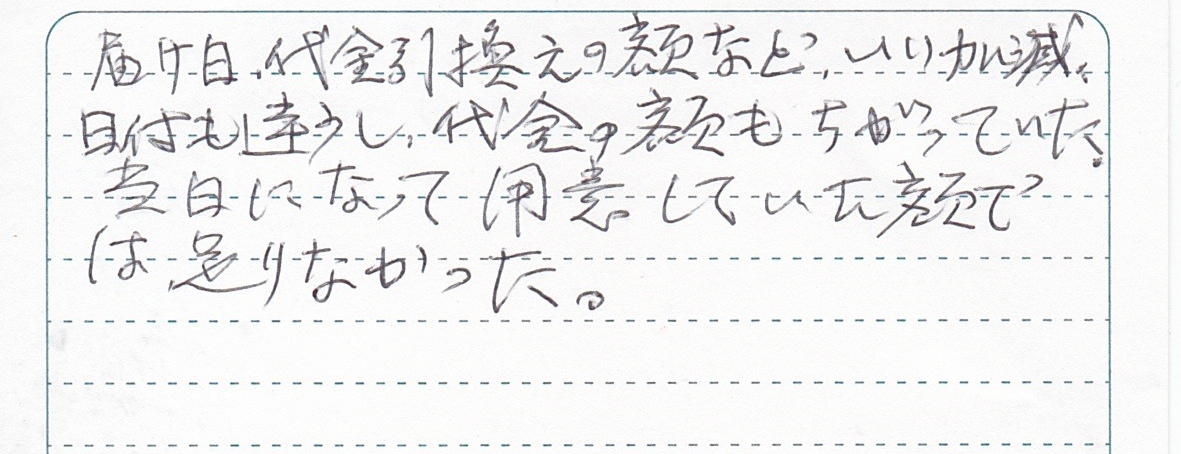 届け日、代金引換えの額など、いい加減。
日付も違うし、代金の額もちがっていた。
当日になって用意していた額で
は、足りなかった。